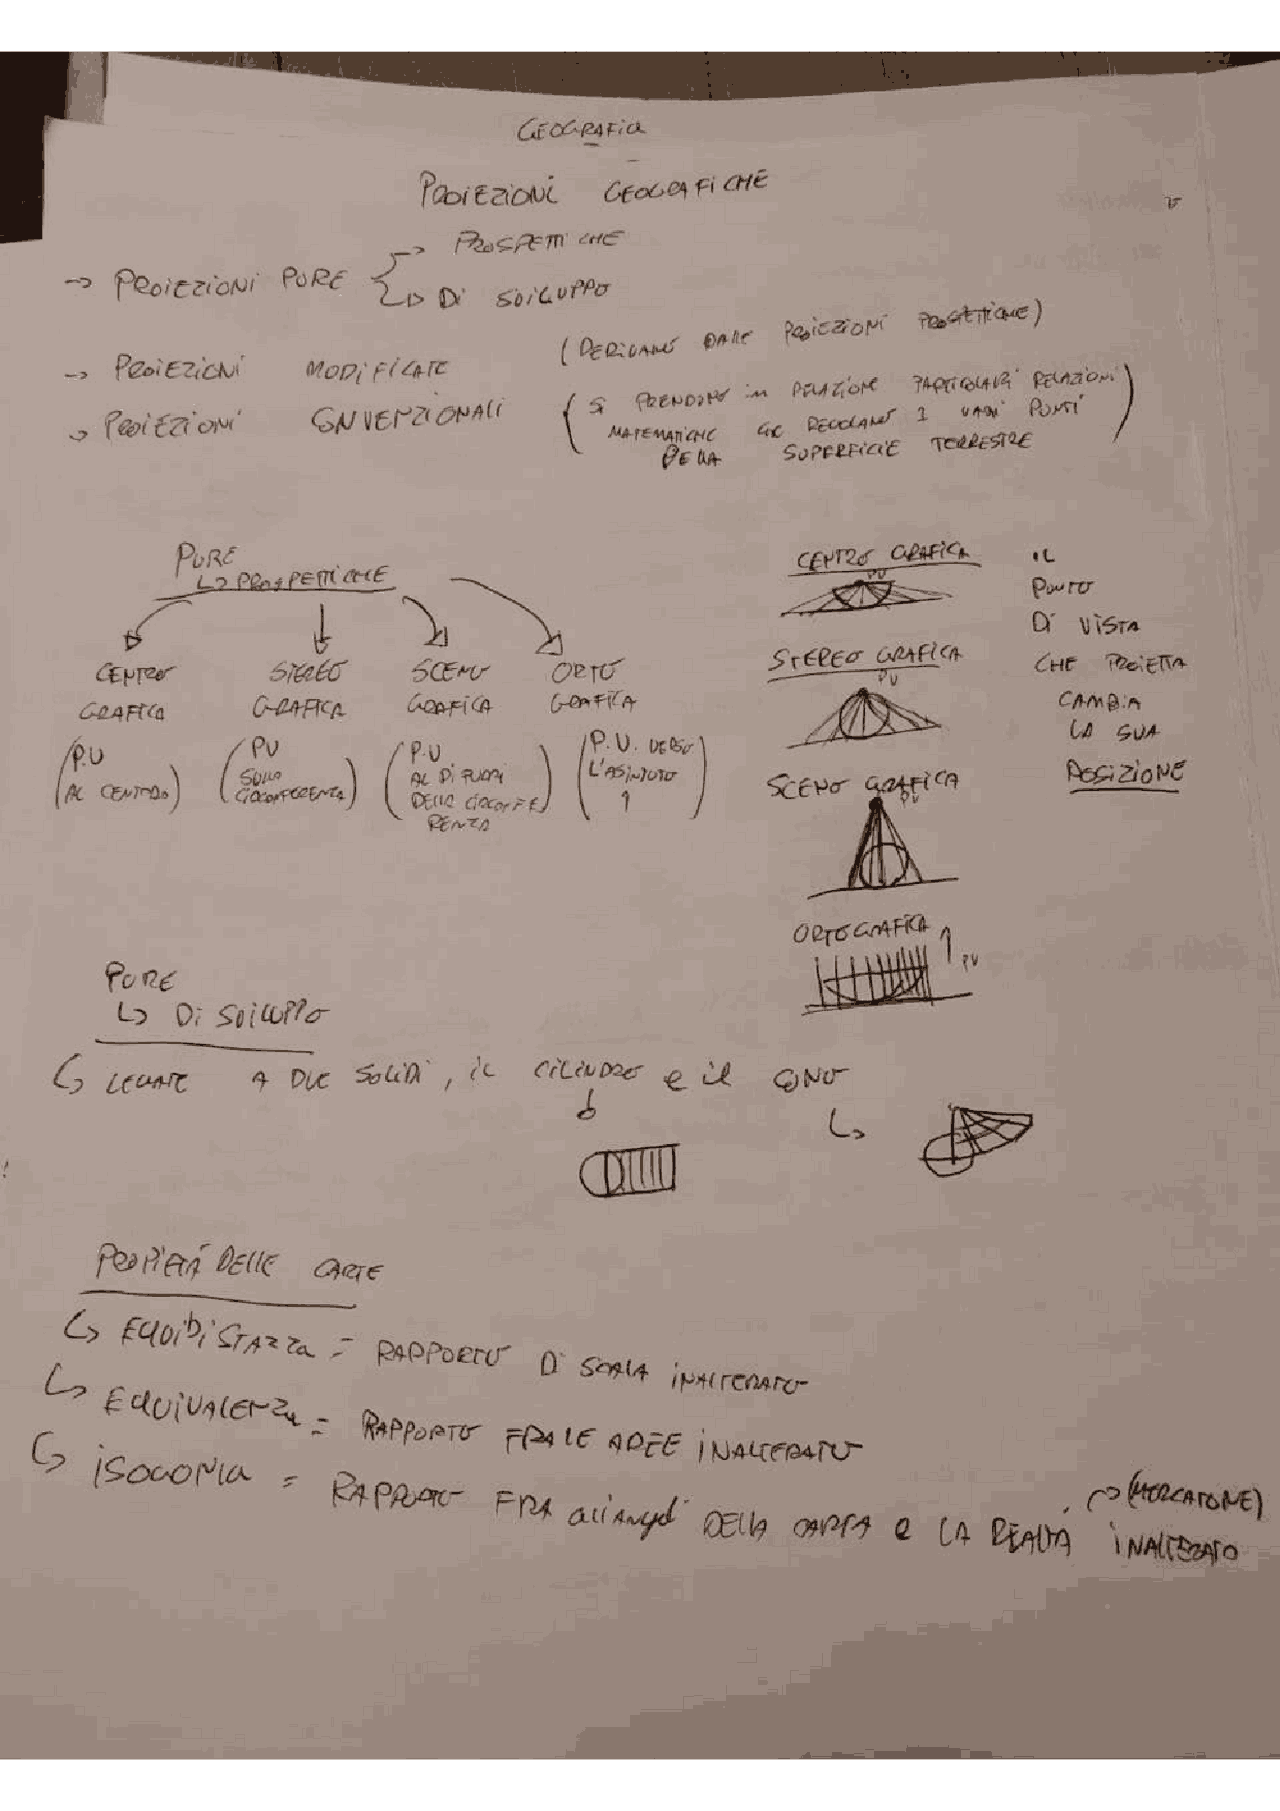 GEOGRAFIA
PROIEZIONI GEOGRAFICHE
→ PROIEZIONI PURE → PROSPETTICHE
→ DI SVILUPPO
→ PROIEZIONI MODIFICATE (DERIVANO DALLE PROIEZIONI PROSPETTICHE)
→ PROIEZIONI CONVENZIONALI (SI PRENDONO IN RELAZIONE PARTICOLARI RELAZIONI
MATEMATICHE CHE REGOLANO I VARI PUNTI
DELLA SUPERFICIE TERRESTRE)
PURE
↳ PROSPETTICHE
CENTRO GRAFICA
(P.V AL CENTRO)
STEREO GRAFICA
(PV SULLA CIRCONFERENZA)
SCENO GRAFICA
(P.V AL DI FUORI DELLA CIRCONFERENZA)
ORTO GRAFICA
(P.V. VERSO L'ASINTOTO ↑)
CENTRO GRAFICA
PV
STEREO GRAFICA
PV
SCENO GRAFICA
PV
ORTOGRAFICA
PV
IL
PUNTO
DI VISTA
CHE PROIETTA
CAMBIA
LA SUA
POSIZIONE
PURE
↳ DI SVILUPPO
↳ LEGATE A DUE SOLIDI, IL CILINDRO e il CONO
PROPIETÁ DELLE CARTE
↳ EQUIDISTAZZA = RAPPORTO DI SCALA INALTERATO
↳ EQUIVALENZA = RAPPORTO FRA LE AREE INALTERATO
↳ ISOGONIA = RAPPORTO FRA GLI ANGOLI DELLA CARTA E LA REALTÀ INALTERATO
→ (MERCATORE)